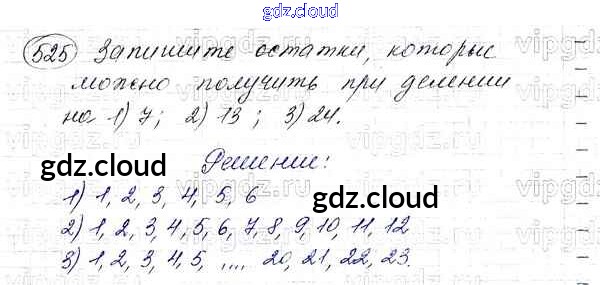 gdz.cloud
525 Запишите остатки, которые
можно получить при делении
на 1) 7; 2) 13; 3) 24.
gdz.cloud
Решение:
1) 1, 2, 3, 4, 5, 6
gdz.cloud
2) 1, 2, 3, 4, 5, 6, 7, 8, 9, 10, 11, 12
3) 1, 2, 3, 4, 5, .... 20, 21, 22, 23.